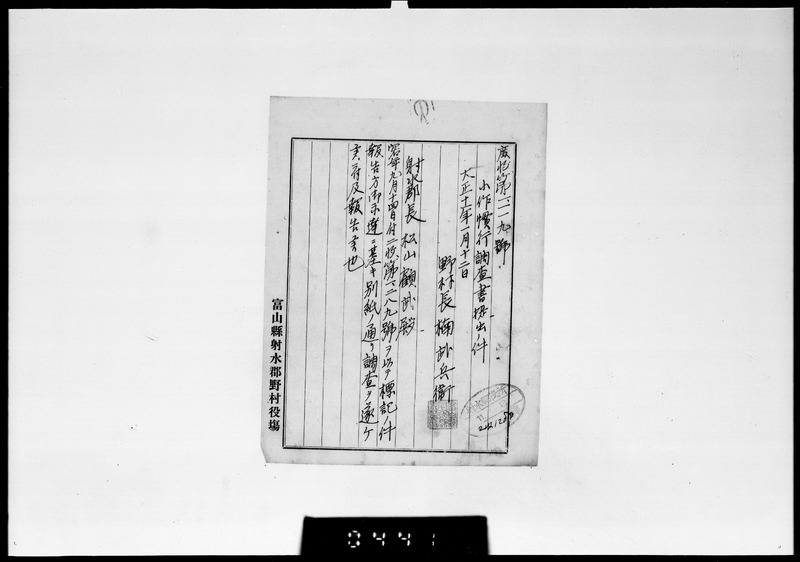 第一二一九號
小作慣行調査書提出ノ件
大正十年一月十二日
野村長 楠 兵衛
射水郡長 松山 殿
年九月十四日付二收第一二八九號ヲ以テ標記ノ件
報告方御示達ニ基キ別紙ノ通リ調査ヲ遂ケ
及報告候也
富山縣射水郡野村役塲
0441